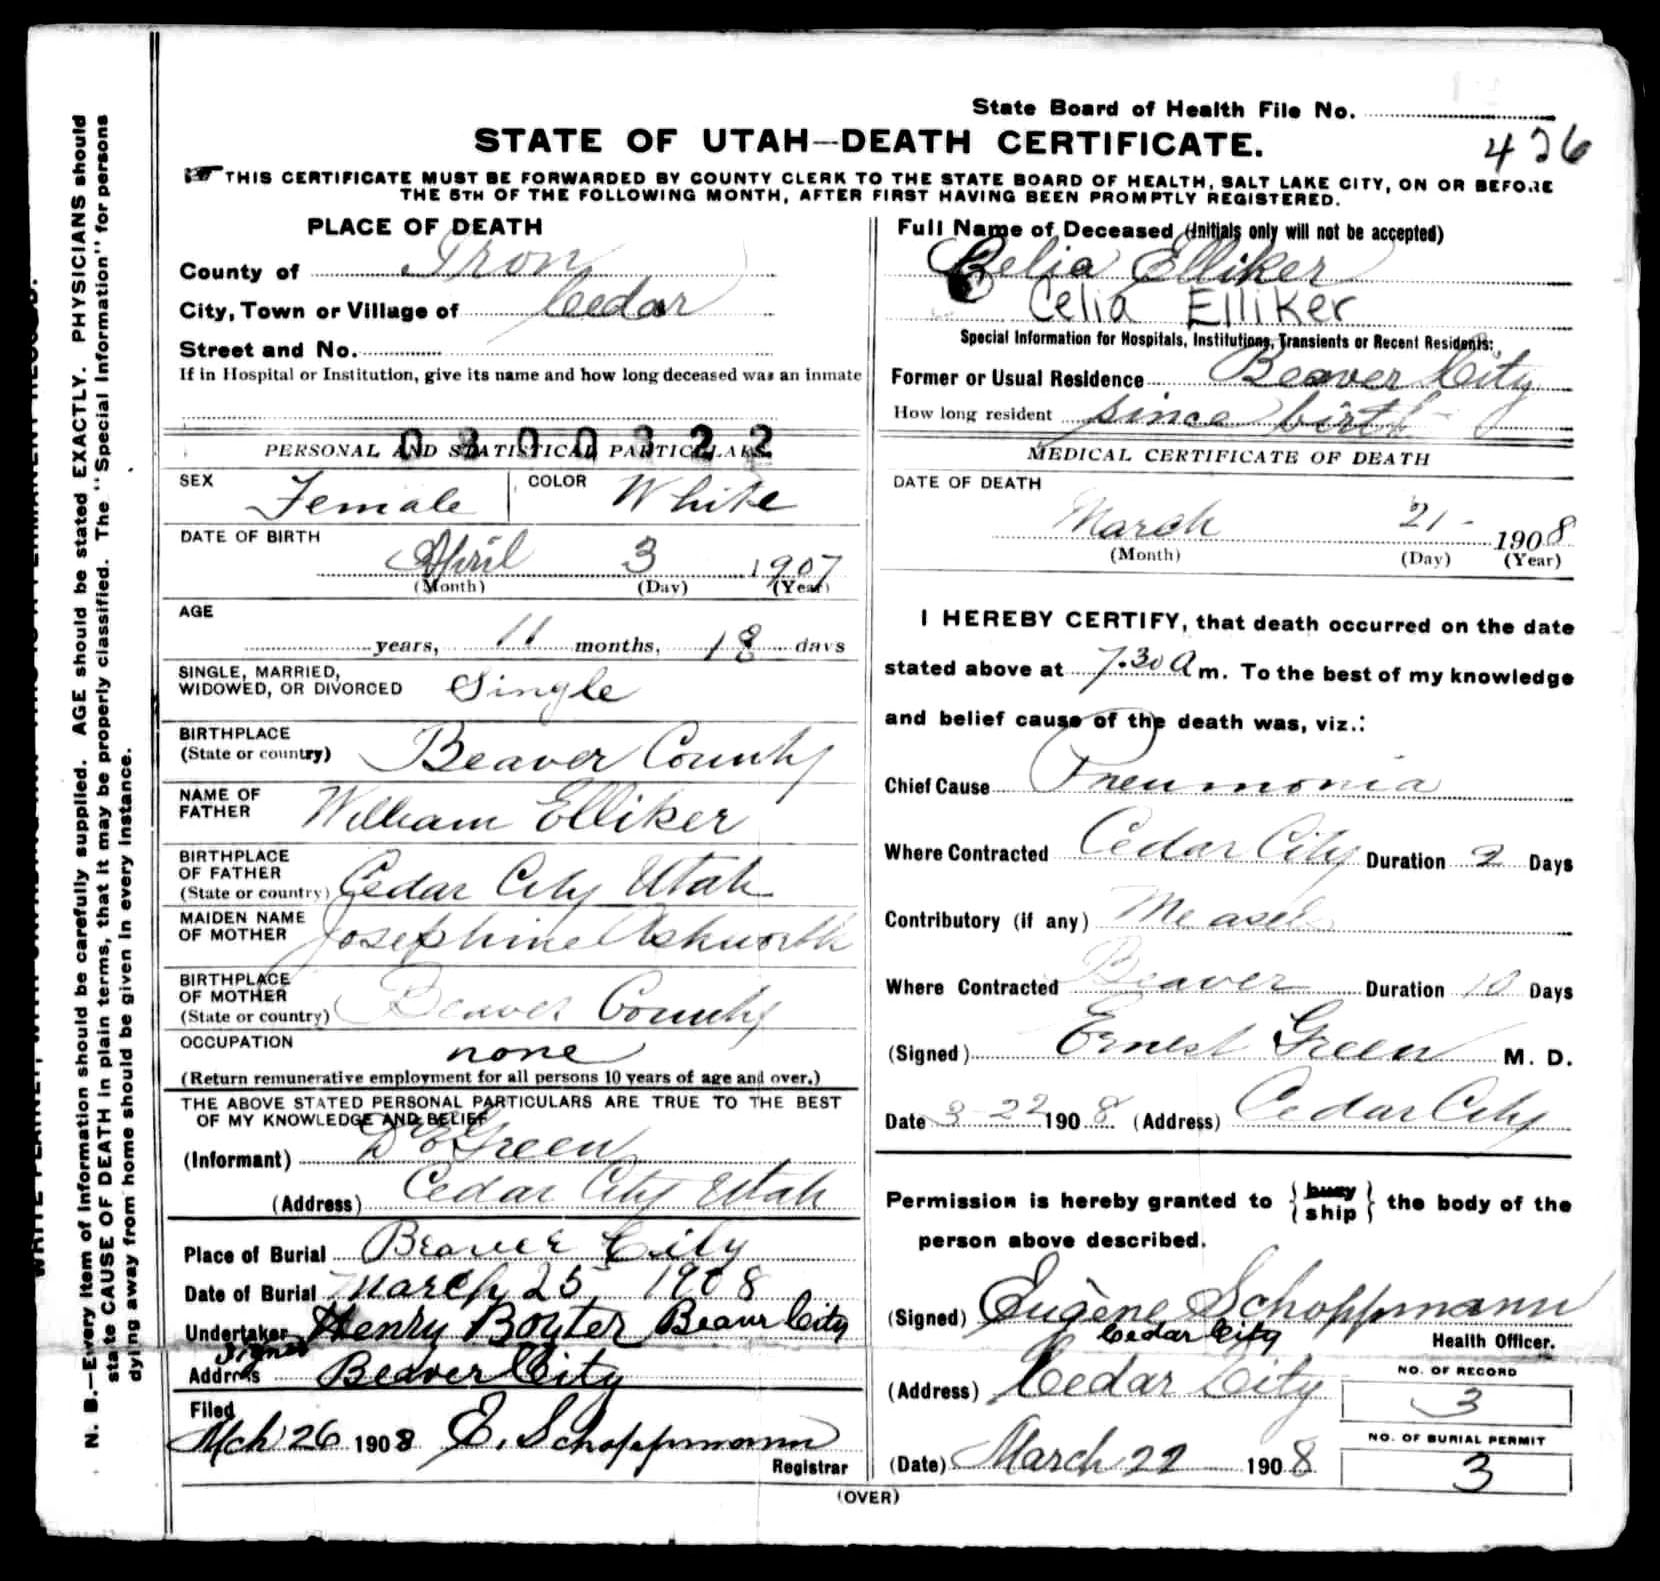 State Board of Health File No.
STATE OF UTAH—DEATH CERTIFICATE.
426
THIS CERTIFICATE MUST BE FORWARDED BY COUNTY CLERK TO THE STATE BOARD OF HEALTH, SALT LAKE CITY, ON OR BEFORE
THE 5TH OF THE FOLLOWING MONTH, AFTER FIRST HAVING BEEN PROMPTLY REGISTERED.
PLACE OF DEATH
County of Iron
City, Town or Village of Cedar
Street and No.
If in Hospital or Institution, give its name and how long deceased was an inmate
0300322
PERSONAL AND STATISTICAL PARTICULARS
SEX Female COLOR White
DATE OF BIRTH
April 3 1907
(Month) (Day) (Year)
AGE
years, 11 months, 18 days
SINGLE, MARRIED,
WIDOWED, OR DIVORCED Single
BIRTHPLACE
(State or country) Beaver County
NAME OF
FATHER William Elliker
BIRTHPLACE
OF FATHER
(State or country) Cedar City Utah
MAIDEN NAME
OF MOTHER Josephine Ashworth
BIRTHPLACE
OF MOTHER
(State or country) Beaver County
OCCUPATION none
(Return remunerative employment for all persons 10 years of age and over.)
THE ABOVE STATED PERSONAL PARTICULARS ARE TRUE TO THE BEST
OF MY KNOWLEDGE AND BELIEF
(Informant) D E Green
(Address) Cedar City Utah
Place of Burial Beaver City
Date of Burial March 25 1908
Undertaker Henry Boyter Beaver City
Signed
Address Beaver City
Filed
Mch 26 1908 E. Schoppmann
Registrar
Full Name of Deceased (Initials only will not be accepted)
Celia Elliker
Celia Elliker
Special Information for Hospitals, Institutions, Transients or Recent Residents:
Former or Usual Residence Beaver City
How long resident since birth
MEDICAL CERTIFICATE OF DEATH
DATE OF DEATH
March 21 - 1908
(Month) (Day) (Year)
I HEREBY CERTIFY, that death occurred on the date
stated above at 7.30 A m. To the best of my knowledge
and belief cause of the death was, viz.:
Chief Cause Pneumonia
Where Contracted Cedar City Duration 2 Days
Contributory (if any) Measels
Where Contracted Beaver Duration 10 Days
(Signed) Ernest Green M. D.
Date 3-22 1908. (Address) Cedar City
Permission is hereby granted to {bury
ship} the body of the
person above described.
(Signed) Eugene Schoppmann
Cedar City Health Officer.
(Address) Cedar City
NO. OF RECORD
3
NO. OF BURIAL PERMIT
3
(Date) March 22 1908
(OVER)
N. B.—Every item of information should be carefully supplied. AGE should be stated EXACTLY. PHYSICIANS should
state CAUSE OF DEATH in plain terms, that it may be properly classified. The "Special Information" for persons
dying away from home should be given in every instance.